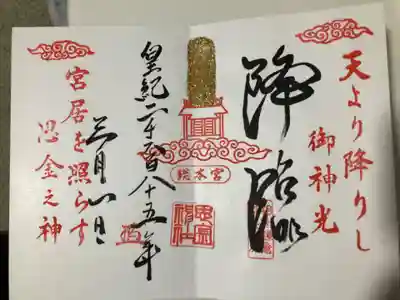 天より降りし
御神光
降臨
総本宮
皇紀二千六百八十五年
宮居を照らす
思金之神